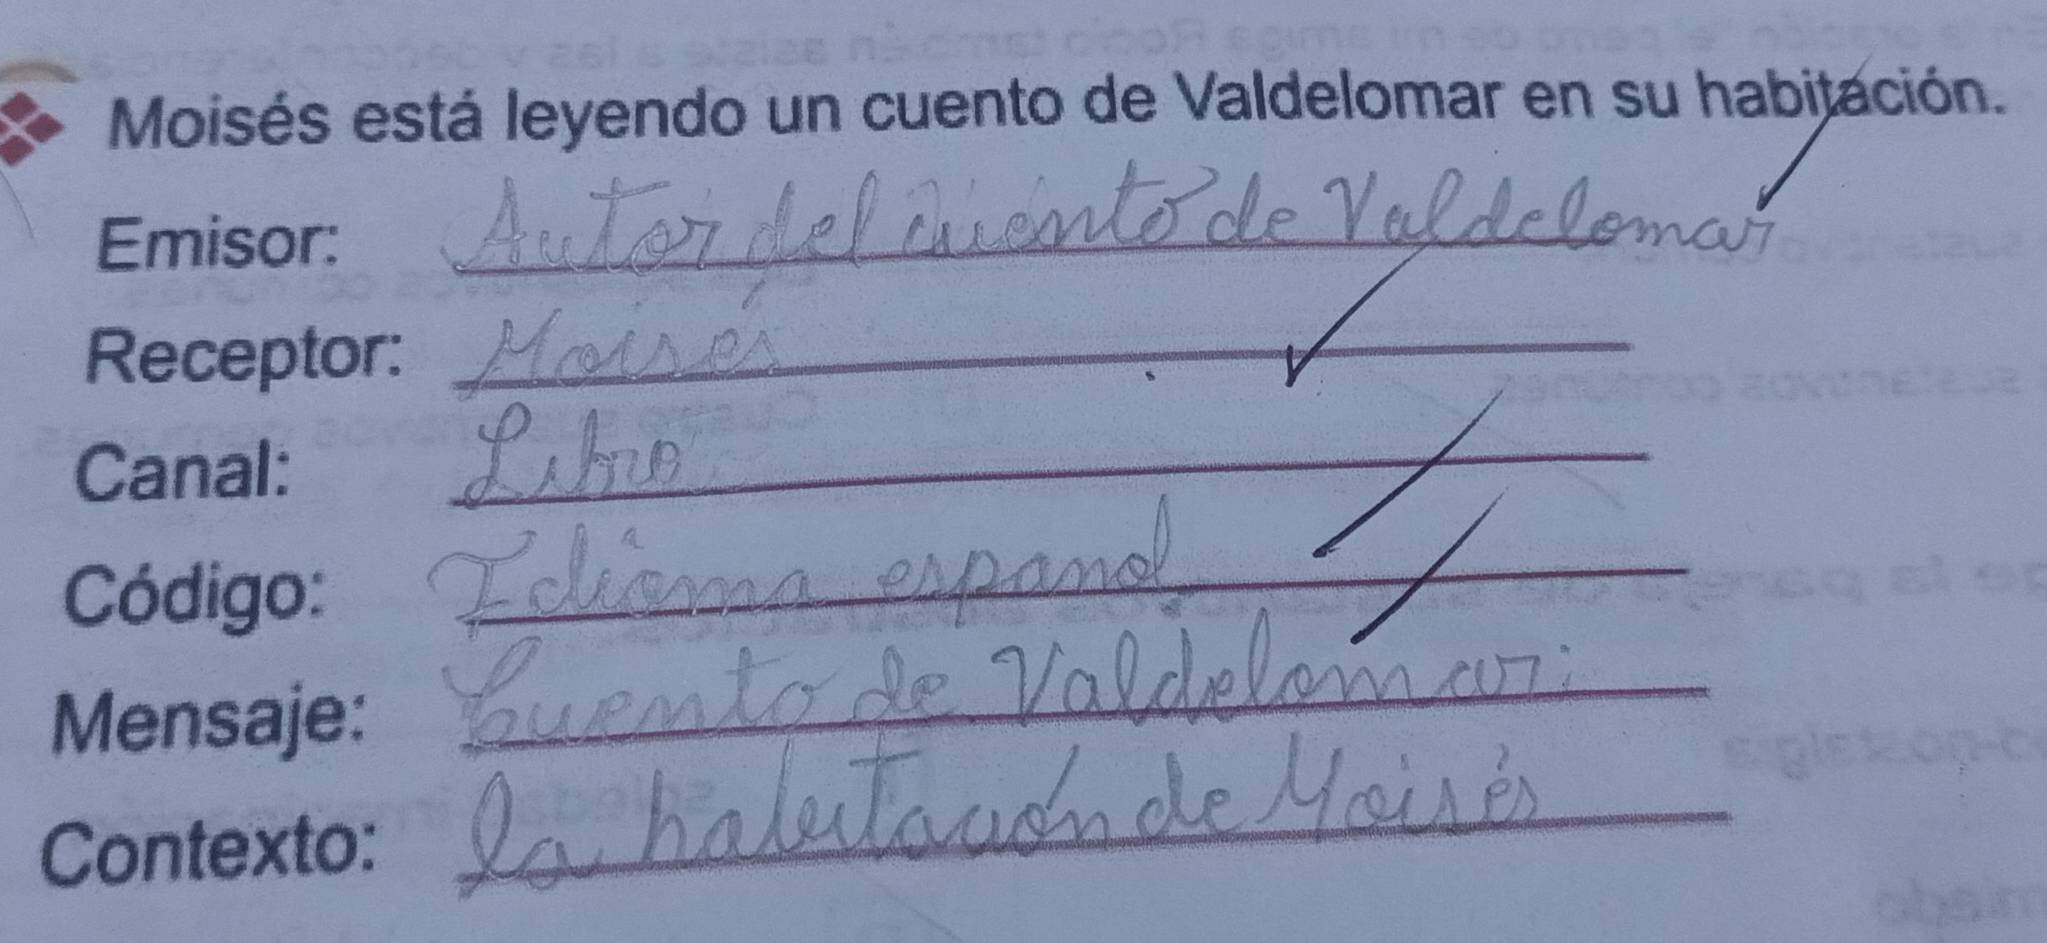 Moisés está leyendo un cuento de Valdelomar en su habitación.
Emisor: Autor del cuento de Valdelomar
Receptor: Moisés
Canal: Libro
Código: Idioma espanol
Mensaje: Cuento de Valdelomar.
Contexto: La habitación de Moisés